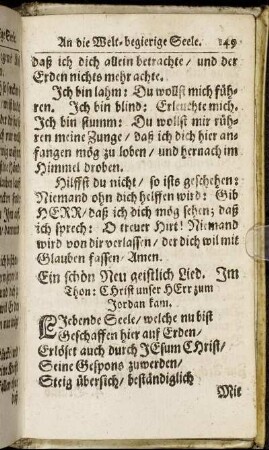 An die Welt-begierige Seele. 149
daß ich dich allein betrachte/ und der
Erden nichts mehr achte.
Ich bin lahm: Du wollst mich füh-
ren. Ich bin blind: Erleuchte mich.
Ich bin stumm: Du wollst mir rüh-
ren meine Zunge/ daß ich dich hier an-
fangen mög zu loben/ und hernach im
Himmel droben.
Hilffst du nicht/ so ists geschehen:
Niemand ohn dich helffen wird: Gib
HERR/ daß ich dich mög sehen; daß
ich sprech: O treuer Hirt! Niemand
wird von dir verlassen/ der dich wil mit
Glauben fassen. Amen.
Ein schön Neu geistlich Lied. Im
Thon: Christ unser HErr zum
Jordan kam.
LIebende Seele/ welche nu bist
Geschaffen hier auf Erden/
Erlöset auch durch JEsum Christ/
Seine Gespons zuwerden/
Steig übersich/ beständiglich
Mit